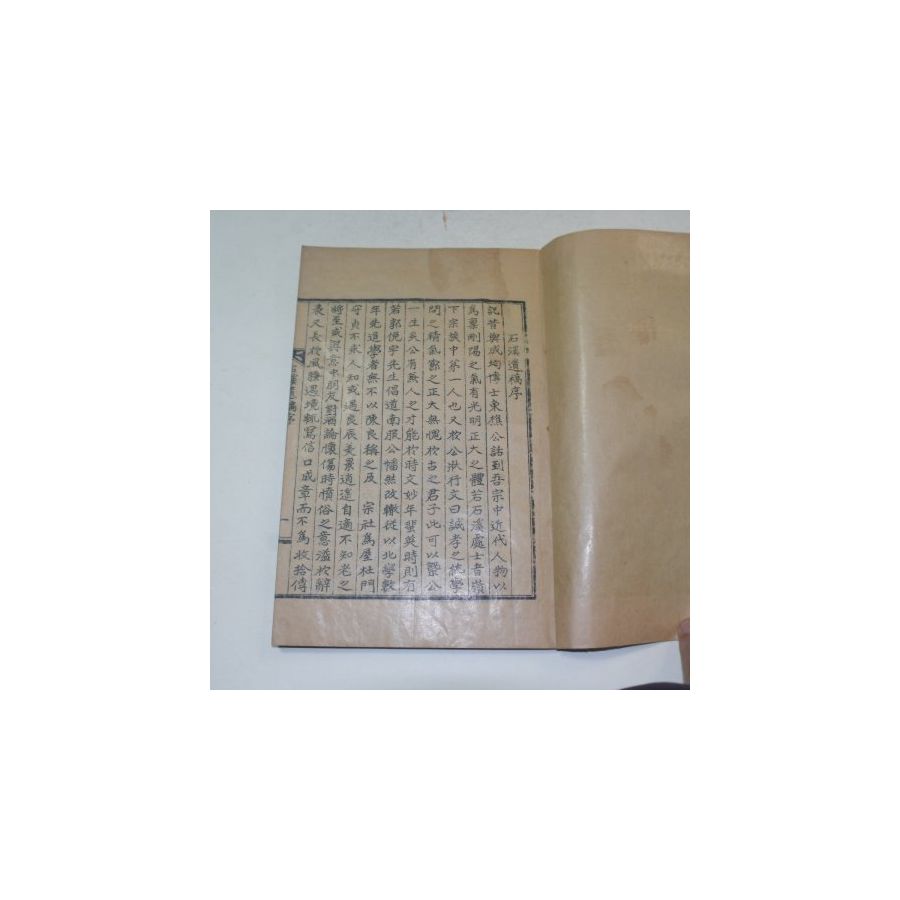 石溪遺稿序
記昔與成均博士東樵公話到吾宗中近代人物以
爲稟剛陽之氣有光明正大之體若石溪處士者嶺
下宗族中第一人也又於公狀行文曰誠孝之純學
問之精氣節之正大無愧於古之君子此可以槩公
一生矣公有無人之才能於時文妙年蜚英時則有
若郭俛宇先生倡道南服公幡然改轍從以北學數
年先進學者無不以陳良稱之及 宗社爲屋杜門
守貞不求人知或遇良辰美景逍遙自適不知老之
將至或與意中朋友對酒論懷傷時憤俗之意溢於辭
表又長於風騷遇境輒寫信口成章而不爲收拾傳
石溪遺稿序
一